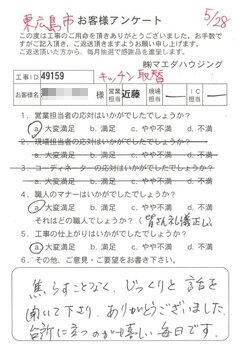 東広島市 お客様アンケート 5/28
この度は工事のご用命を頂きありがとうございました。お手数で
すがご記入頂き、ご返送頂きますようお願い申し上げます。
ご返送頂いた方から、毎月抽選で感謝品を進呈します。
㈱マエダハウジング
工事ID 49159 キッチン取替
お客様名 営業担当 近藤 現場担当 IC担当
1. 営業担当者の応対はいかがでしたでしょうか?
a.大変満足 b.満足 c.やや不満 d.不満
2. 現場担当者の応対はいかがでしたでしょうか?
a.大変満足 b.満足 c.やや不満 d.不満
3. コーディネーターの応対はいかがでしたでしょうか?
a.大変満足 b.満足 c.やや不満 d.不満
4. 職人のマナーはいかがでしたでしょうか?
a.大変満足 b.満足 c.やや不満 d.不満
それはどの職人でしょうか?(皆さん礼儀正しい)
5. 工事の仕上がりはいかがでしたでしょうか?
a.大変満足 b.満足 c.やや不満 d.不満
6. その他、ご意見・ご要望をお書き下さい。
焦らすことなく、じっくりと話を
聞いて下さり、ありがとうございました。
台所に立つのが嬉しい毎日です。